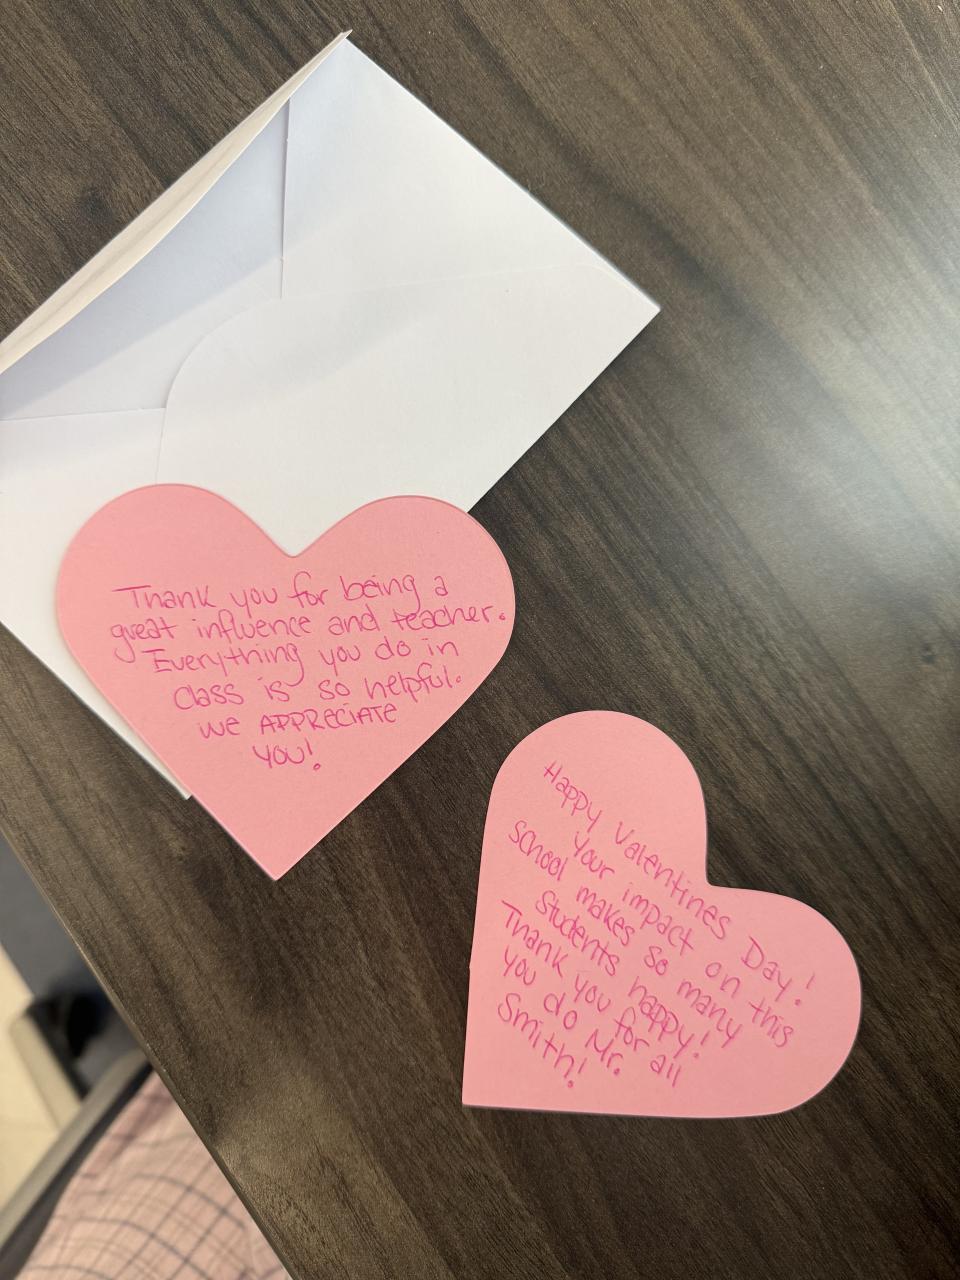 Thank you for being a
great influence and teacher.
Everything you do in
class is so helpful.
we APPRECIATE
you!
Happy Valentines Day!
Your impact on this
school makes so many
students happy!
Thank you for all
you do Mr.
Smith!